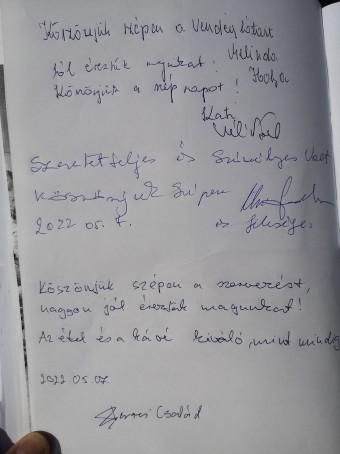 Köszönjük szépen a Vendég látást
Melinda
Jól éreztük magunkat!
Köszönjük a szép napot!
Kati
Szeretetteljes és Személyes Volt
Köszönjük Szépen
2022 05. 7.
és felesége.
Köszönjük szépen a szervezést,
nagyon jól éreztük magunkat!
Az étel és a kávé kiváló, mint mindig
2022.05.07.
Család